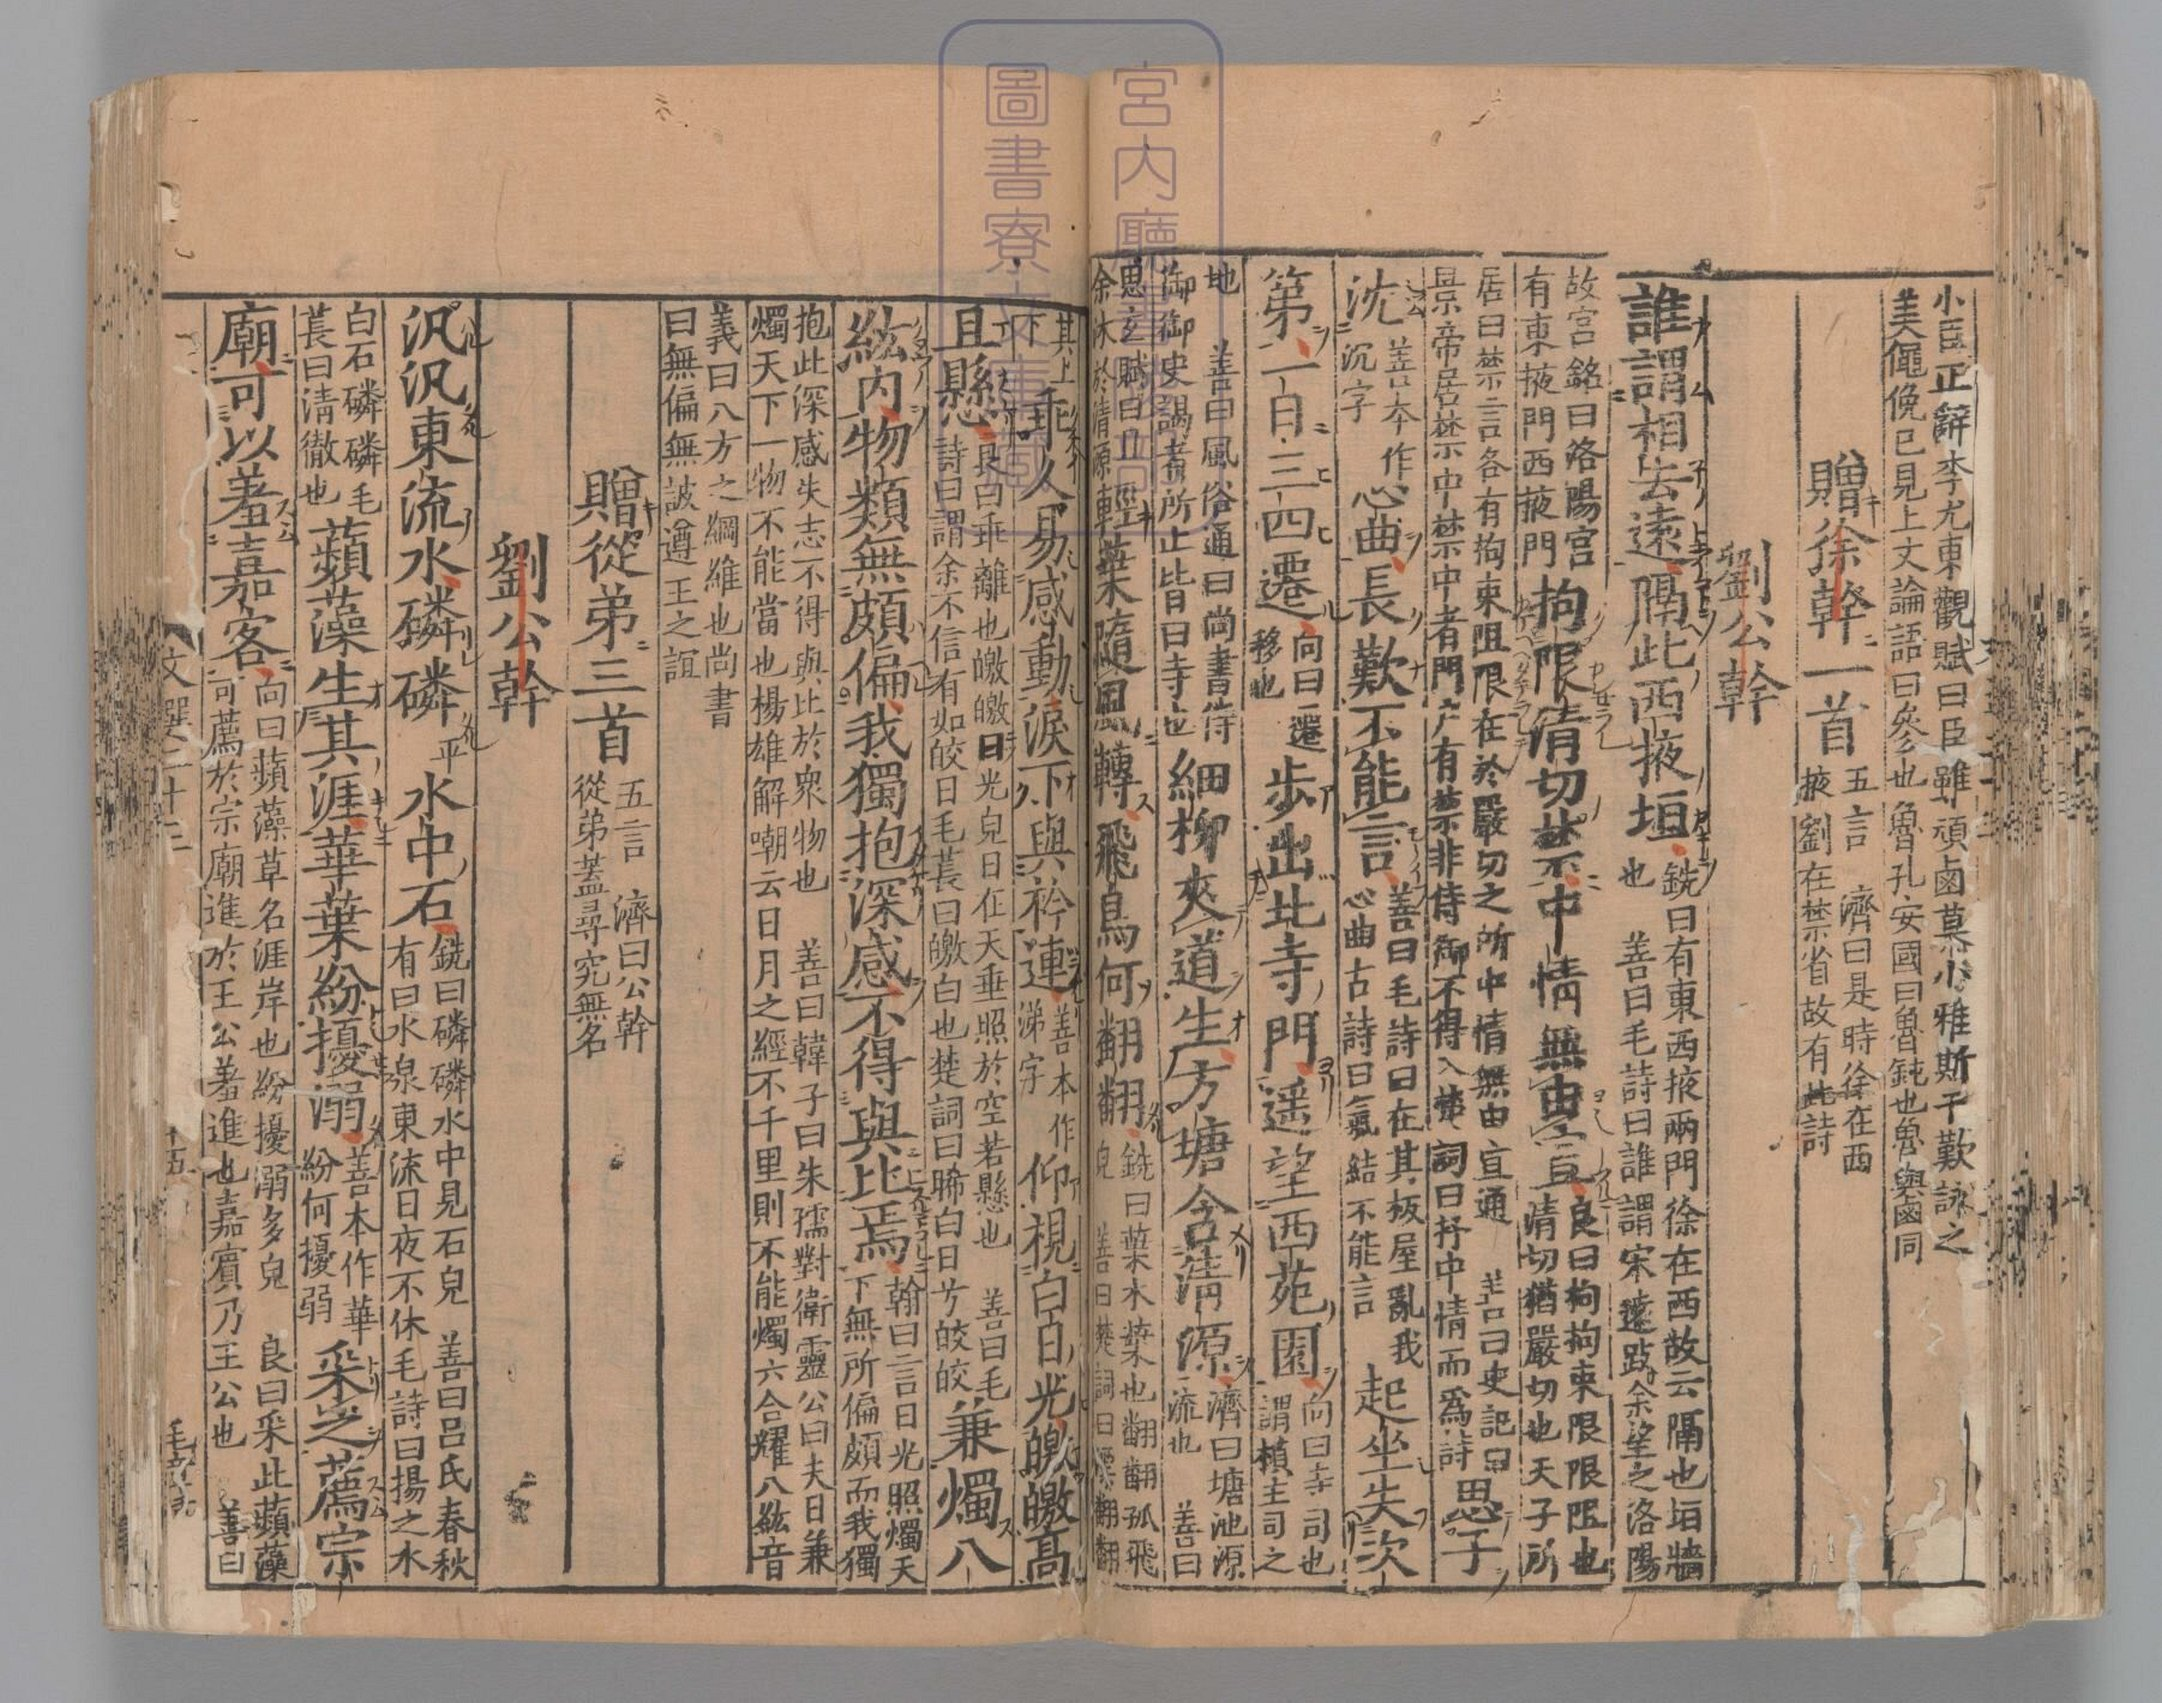 小臣正辭李尤東觀賦曰臣雖頑鹵慕小雅斯干歎詠之
美僶俛已見上文論語曰參也魯孔安國曰魯鈍也魯與鹵同
贈徐幹一首 五言 濟曰是時徐在西
掖劉在禁省故有此詩
劉公幹
誰謂相去遠隔此西掖垣 銑曰有東西掖兩門徐在西故云隔也垣牆
也 善曰毛詩曰誰謂宋遠跂余望之洛陽
故宮銘曰洛陽宮
有東掖門西掖門 拘限清切禁中情無由宣 良曰拘拘束限限阻也
清切猶嚴切也天子所
居曰禁言各有拘束阻限在於嚴切之所中情無由宣通 善曰史記曰
景帝居禁中禁中者門户有禁非侍御不得入楚詞曰抒中情而爲詩 思子
沈 善本作
沉字 心曲長歎不能言 善曰毛詩曰在其板屋亂我
心曲古詩曰氣結不能言 起坐失次
第一日三四遷 向曰遷
移也 步出北寺門遥望西苑園 向曰寺司也
謂楨主司之
地 善曰風俗通曰尚書侍
御御史謁者所止皆曰寺也 細柳夾道生方塘含清源 濟曰塘池源
流也 善曰
思玄賦曰且
余沐於清源 輕葉隨風轉飛鳥何翻翻 銑曰葉木葉也翻翻孤飛
皃 善曰楚詞曰漂翻翻
其上
下 乖人易感動淚下與衿連 善本作
涕字 仰視白日光皦皦高
且懸 良曰乖離也皦皦日光皃日在天垂照於空若懸也 善曰毛
詩曰謂余不信有如皎日毛萇曰皦白也楚詞曰晞白日兮皎皎 兼燭八
紘內物類無頗偏我獨抱深感不得與比焉 翰曰言日光照燭天
下無所偏頗而我獨
抱此深感失志不得與比於衆物也 善曰韓子曰朱孺對衛靈公曰夫日兼
燭天下一物不能當也楊雄解嘲云日月之經不千里則不能燭六合耀八紘音
義曰八方之綱維也尚書
曰無偏無詖遵王之誼
贈從弟三首 五言 濟曰公幹
從弟蓋尋究無名
劉公幹
汎汎東流水磷磷 平 水中石 銑曰磷磷水中見石皃 善曰呂氏春秋
有曰水泉東流日夜不休毛詩曰揚之水
白石磷磷毛
萇曰清徹也 蘋藻生其涯華葉紛擾溺 善本作華
紛何擾弱 采之薦宗
廟可以羞嘉客 向曰蘋藻草名涯岸也紛擾溺多皃 良曰采此蘋藻
可薦於宗廟進於王公羞進也嘉賓乃王公也 善曰
文選二十三
十五
宮內廳書陵部
圖書寮文庫藏